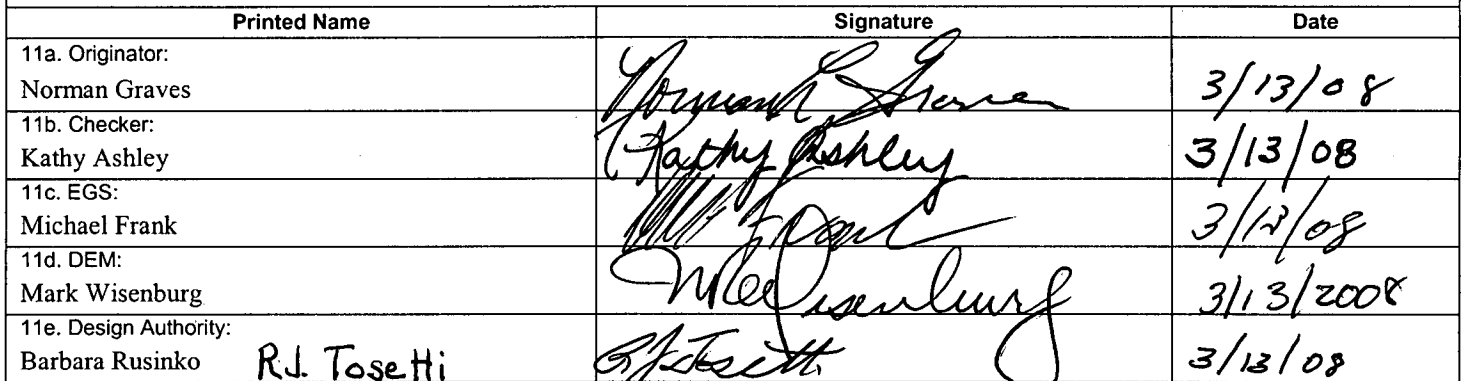 Printed Name Signature Date
11a. Originator:
Norman Graves Norman L Graves 3/13/08
11b. Checker:
Kathy Ashley Kathy Ashley 3/13/08
11c. EGS:
Michael Frank 3/13/08
11d. DEM:
Mark Wisenburg Wisenburg 3/13/2008
11e. Design Authority:
Barbara Rusinko R.J. Tosetti RJ Tosetti 3/13/08